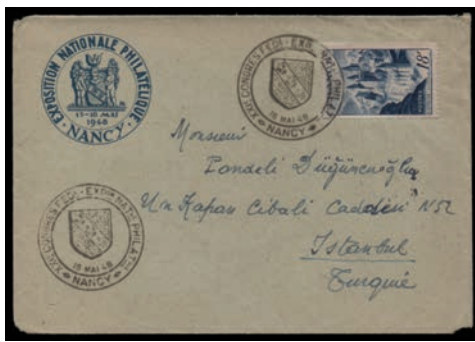 EXPOSITION NATIONALE PHILATELIQUE
13-18 MAI
1948
NANCY
XXI. CONGRES FEDL - EXP
15 MAI 48
NANCY
18F
Monsieur
Pandeli Düğüncüoğlu
Un Kapan Cibali Caddesi N 52
Istanbul
Turquie
XXI. CONGRES FEDL - EXPon NATle PHILATle
15 MAI 48
NANCY